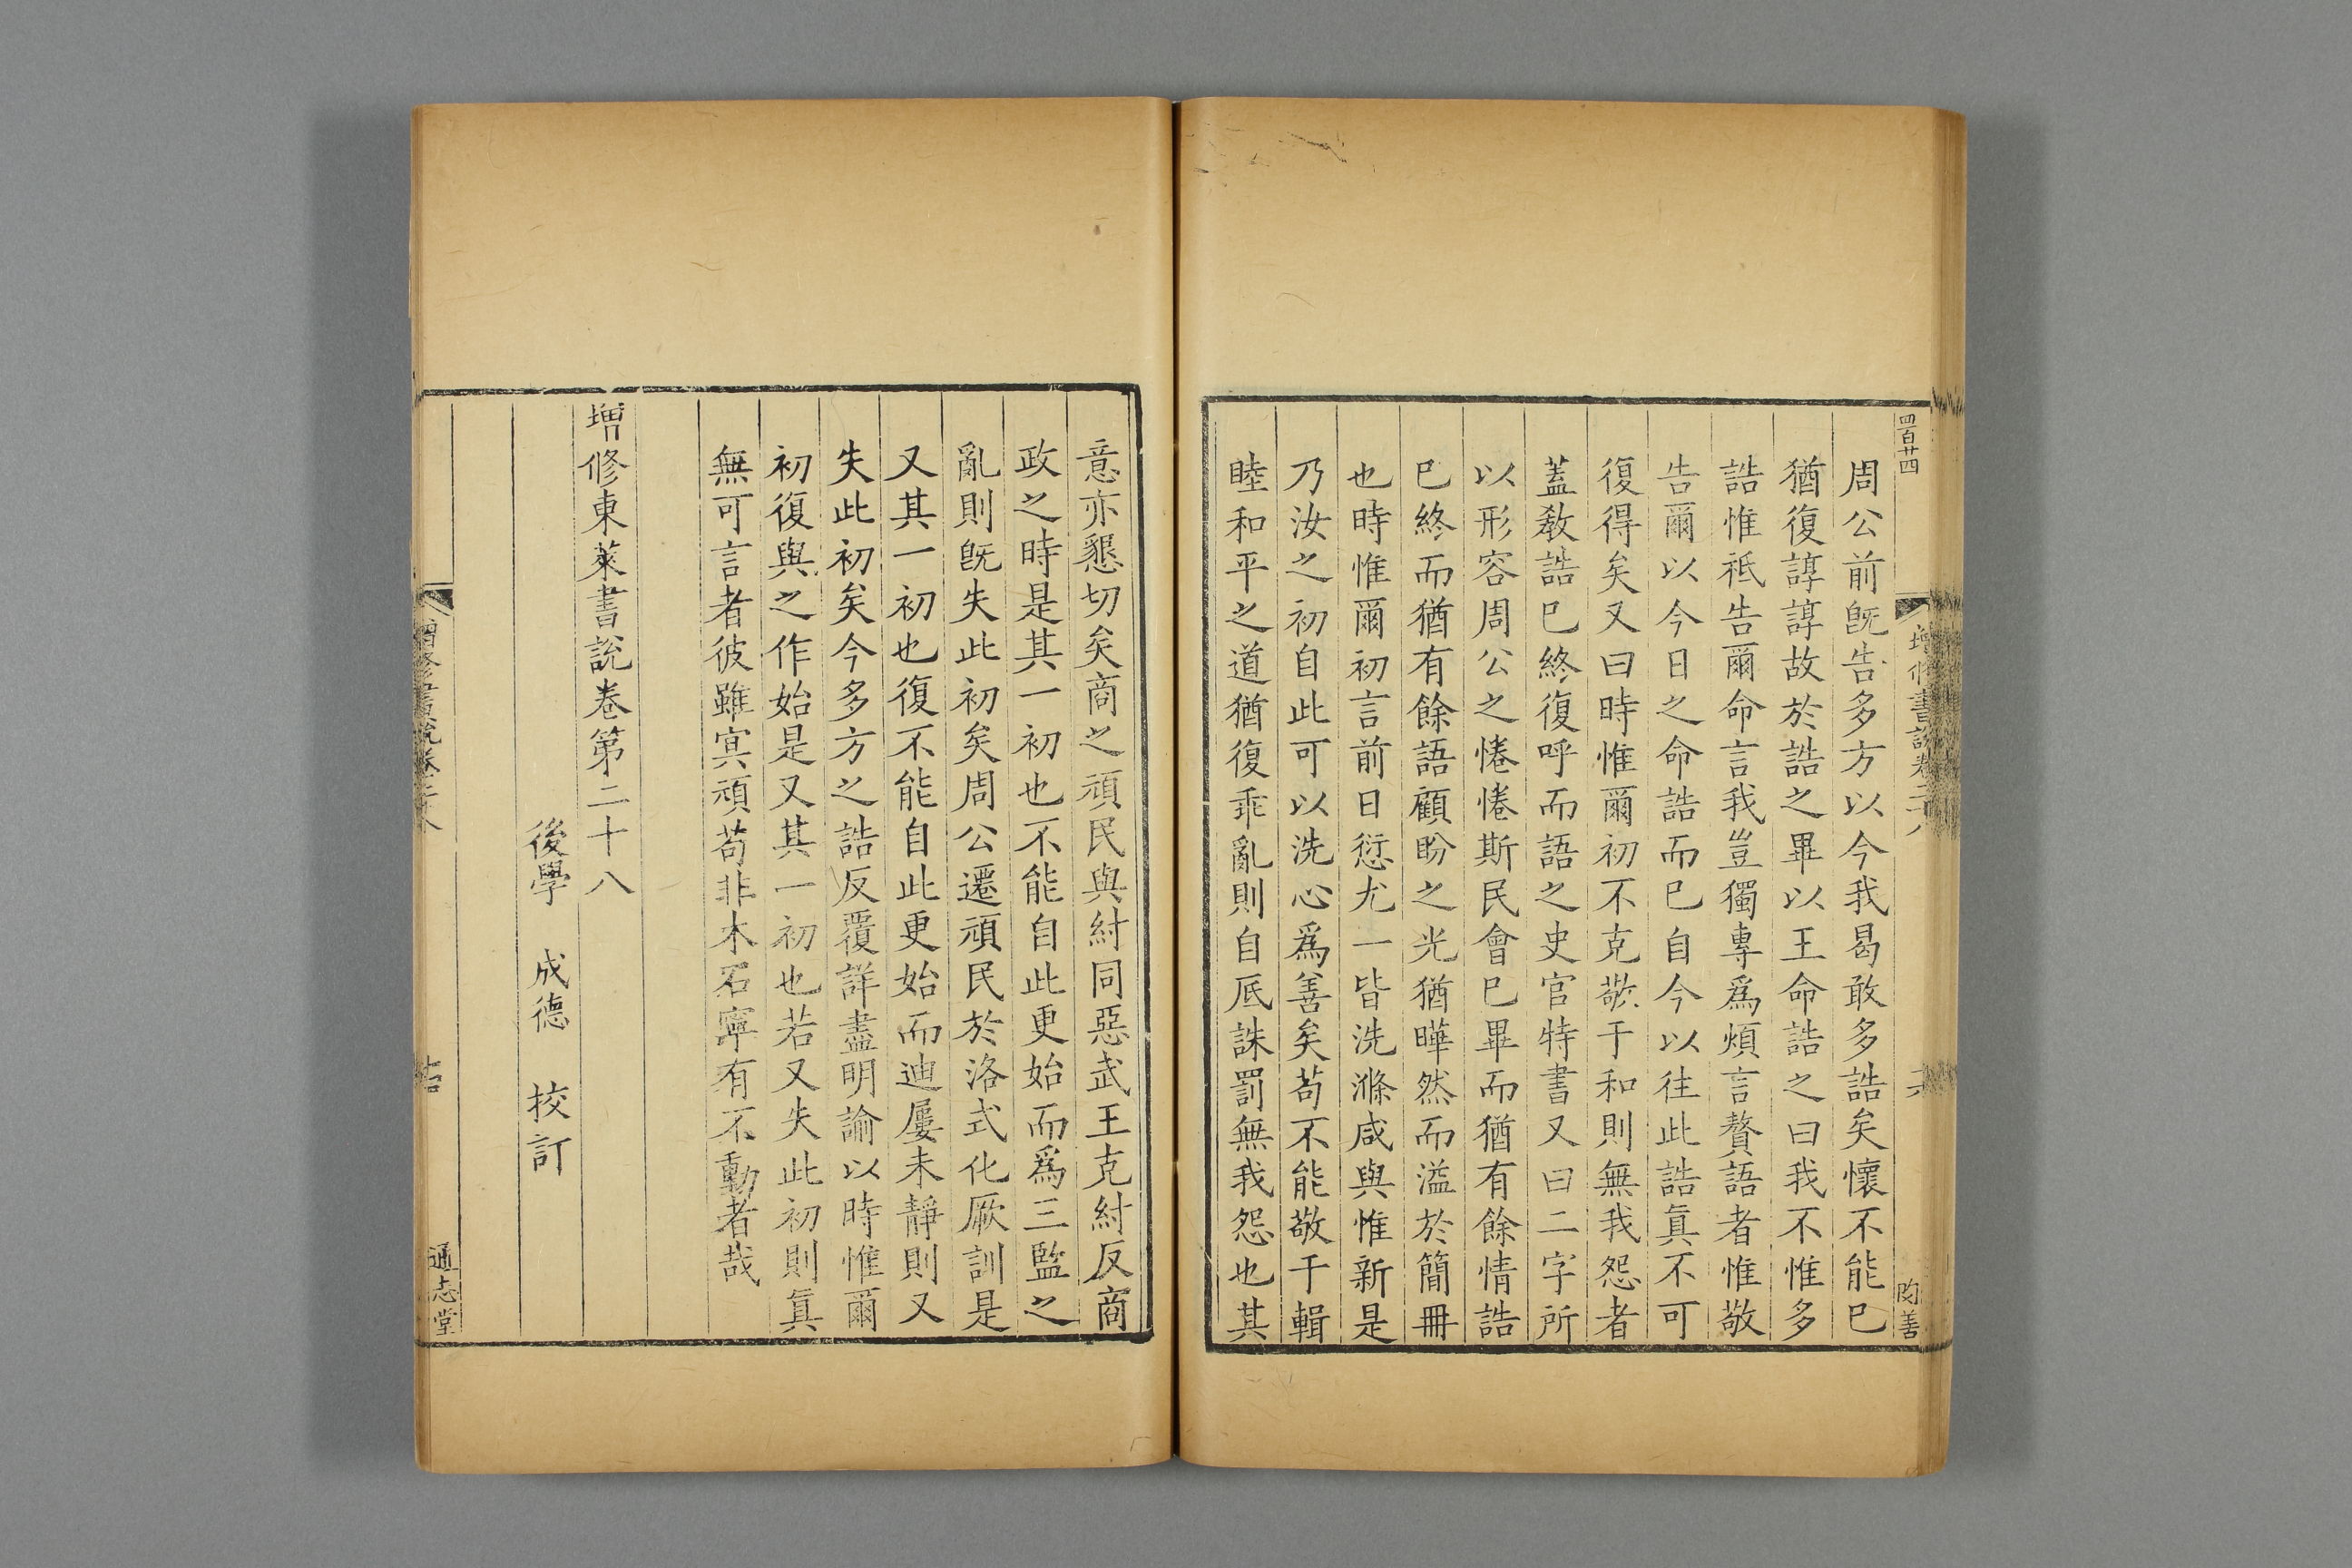 四百廿四
周公前旣告多方以今我曷敢多誥矣懷不能巳
猶復諄諄故於誥之畢以王命誥之曰我不惟多
誥惟祗告爾命言我豈獨專爲煩言贅語者惟敬
告爾以今日之命誥而巳自今以往此誥眞不可
復得矣又曰時惟爾初不克敬于和則無我怨者
蓋敎誥巳終復呼而語之史官特書又曰二字所
以形容周公之惓惓斯民會巳畢而猶有餘情誥
巳終而猶有餘語顧盼之光猶曄然而溢於簡冊
也時惟爾初言前日愆尤一皆洗滌咸與惟新是
乃汝之初自此可以洗心爲善矣苟不能敬于輯
睦和平之道猶復乖亂則自厎誅罰無我怨也其
意亦懇切矣商之頑民與紂同惡武王克紂反商
政之時是其一初也不能自此更始而爲三監之
亂則旣失此初矣周公遷頑民於洛式化厥訓是
又其一初也復不能自此更始而迪屢未靜則又
失此初矣今多方之誥反覆詳盡明諭以時惟爾
初復與之作始是又其一初也若又失此初則眞
無可言者彼雖冥頑苟非木石寧有不動者哉
增修東萊書說卷第二十八
後學 成德 校訂
通志堂